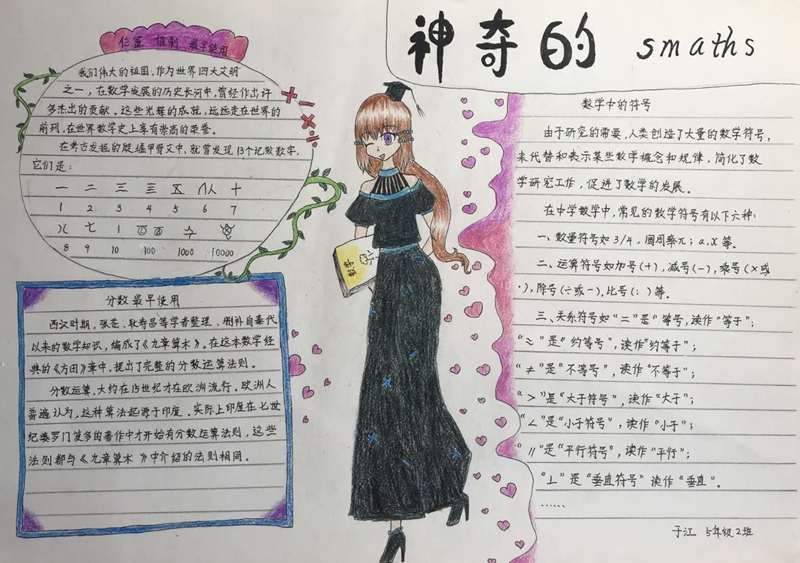 神奇的 smaths
位置 值制 最早使用
我们伟大的祖国,作为世界四大文明
之一,在数学发展的历史长河中,曾经作出许
多杰出的贡献。这些光辉的成就,远远走在世界的
前列,在世界数学史上享有崇高的荣誉。
在考古发掘的殷墟甲骨文中,就曾发现13个记数数字,
它们是:
一 二 三 亖 五 十
1 2 3 4 5 6 7
八 七 丨
8 9 10 100 1000 10000
分数最早使用
西汉时期,张苍、耿寿昌等学者整理、删补自秦代
以来的数学知识,编成了《九章算术》。在这本数学经
典的《方田》章中,提出了完整的分数运算法则。
分数运算,大约在15世纪才在欧洲流行。欧洲人
普遍认为,这种算法起源于印度。实际上印度在七世
纪婆罗门笈多的著作中才开始有分数运算法则,这些
法则都与《九章算术》中介绍的法则相同。
数学
数学中的符号
由于研究的需要,人类创造了大量的数学符号,
来代替和表示某些数学概念和规律,简化了数
学研究工作,促进了数学的发展。
在中学数学中,常见的数学符号有以下六种:
一、数量符号如3/4,圆周率π;a.x等。
二、运算符号如加号(+),减号(-),乘号(×或
·),除号(÷或-),比号(:)等。
三、关系符号如“=”是“等号,读作“等于”;
“≈”是“约等号”,读作“约等于”;
“≠”是“不等号”,读作“不等于”;
“>”是“大于符号”,读作“大于”;
“<”是“小于符号”,读作“小于”;
“∥”是“平行符号”,读作“平行”;
“⊥”是“垂直符号”读作“垂直”。
……
于江 5年级2班